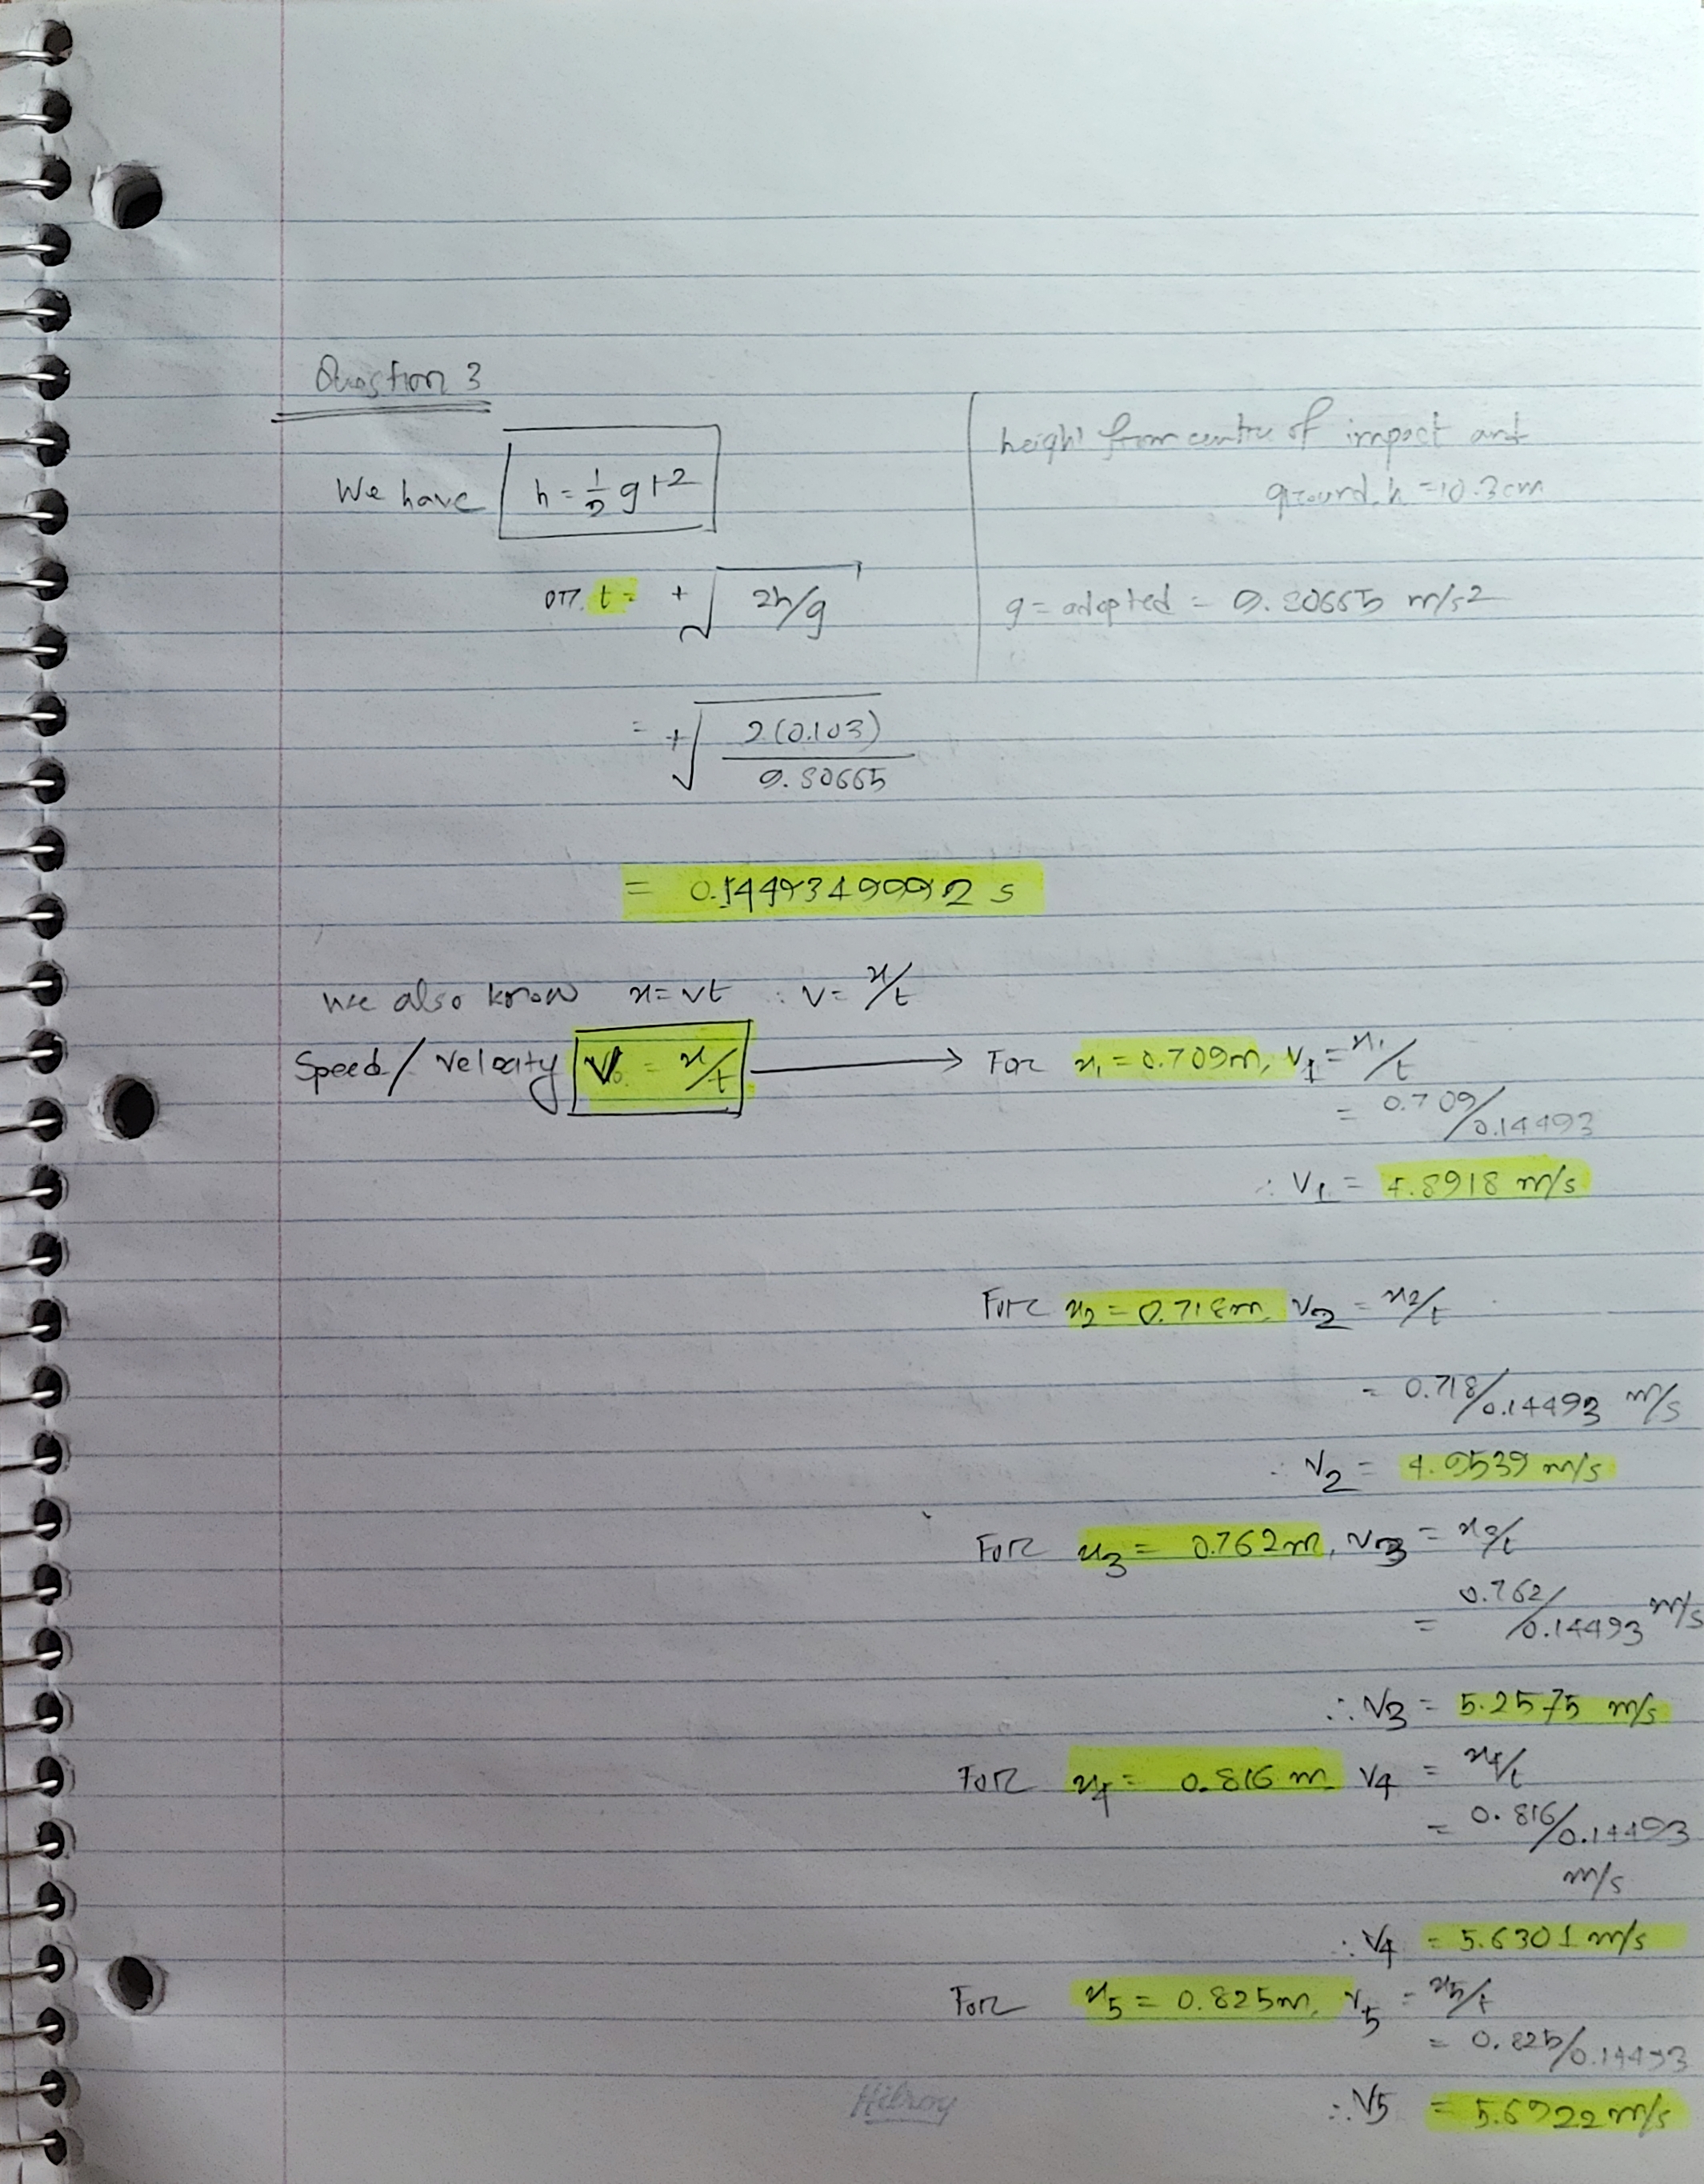 Question 3
We have h = 1/2 gt2
height from centre of impact and
ground, h = 10.3cm
or. t = + √ 2h/g
g = adopted = 9.80665 m/s2
= + √ 2(0.103)
9.80665
= 0.1449349992 s
we also know x = vt ∴ v = x/t
Speed/velocity V = x/t → For x1 = 0.709m, v1 = x1/t
= 0.709/0.14493
∴ V1 = 4.8918 m/s
For x2 = 0.718m, v2 = x2/t
= 0.718/0.14493 m/s
∴ V2 = 4.9539 m/s
For x3 = 0.762m, v3 = x3/t
= 0.762/0.14493 m/s
∴ V3 = 5.2575 m/s
For x4 = 0.816 m. V4 = x4/t
= 0.816/0.14493
m/s
∴ V4 = 5.6301 m/s
For x5 = 0.825m, v5 = x5/t
= 0.825/0.14493
∴ V5 = 5.6922 m/s
Hilroy